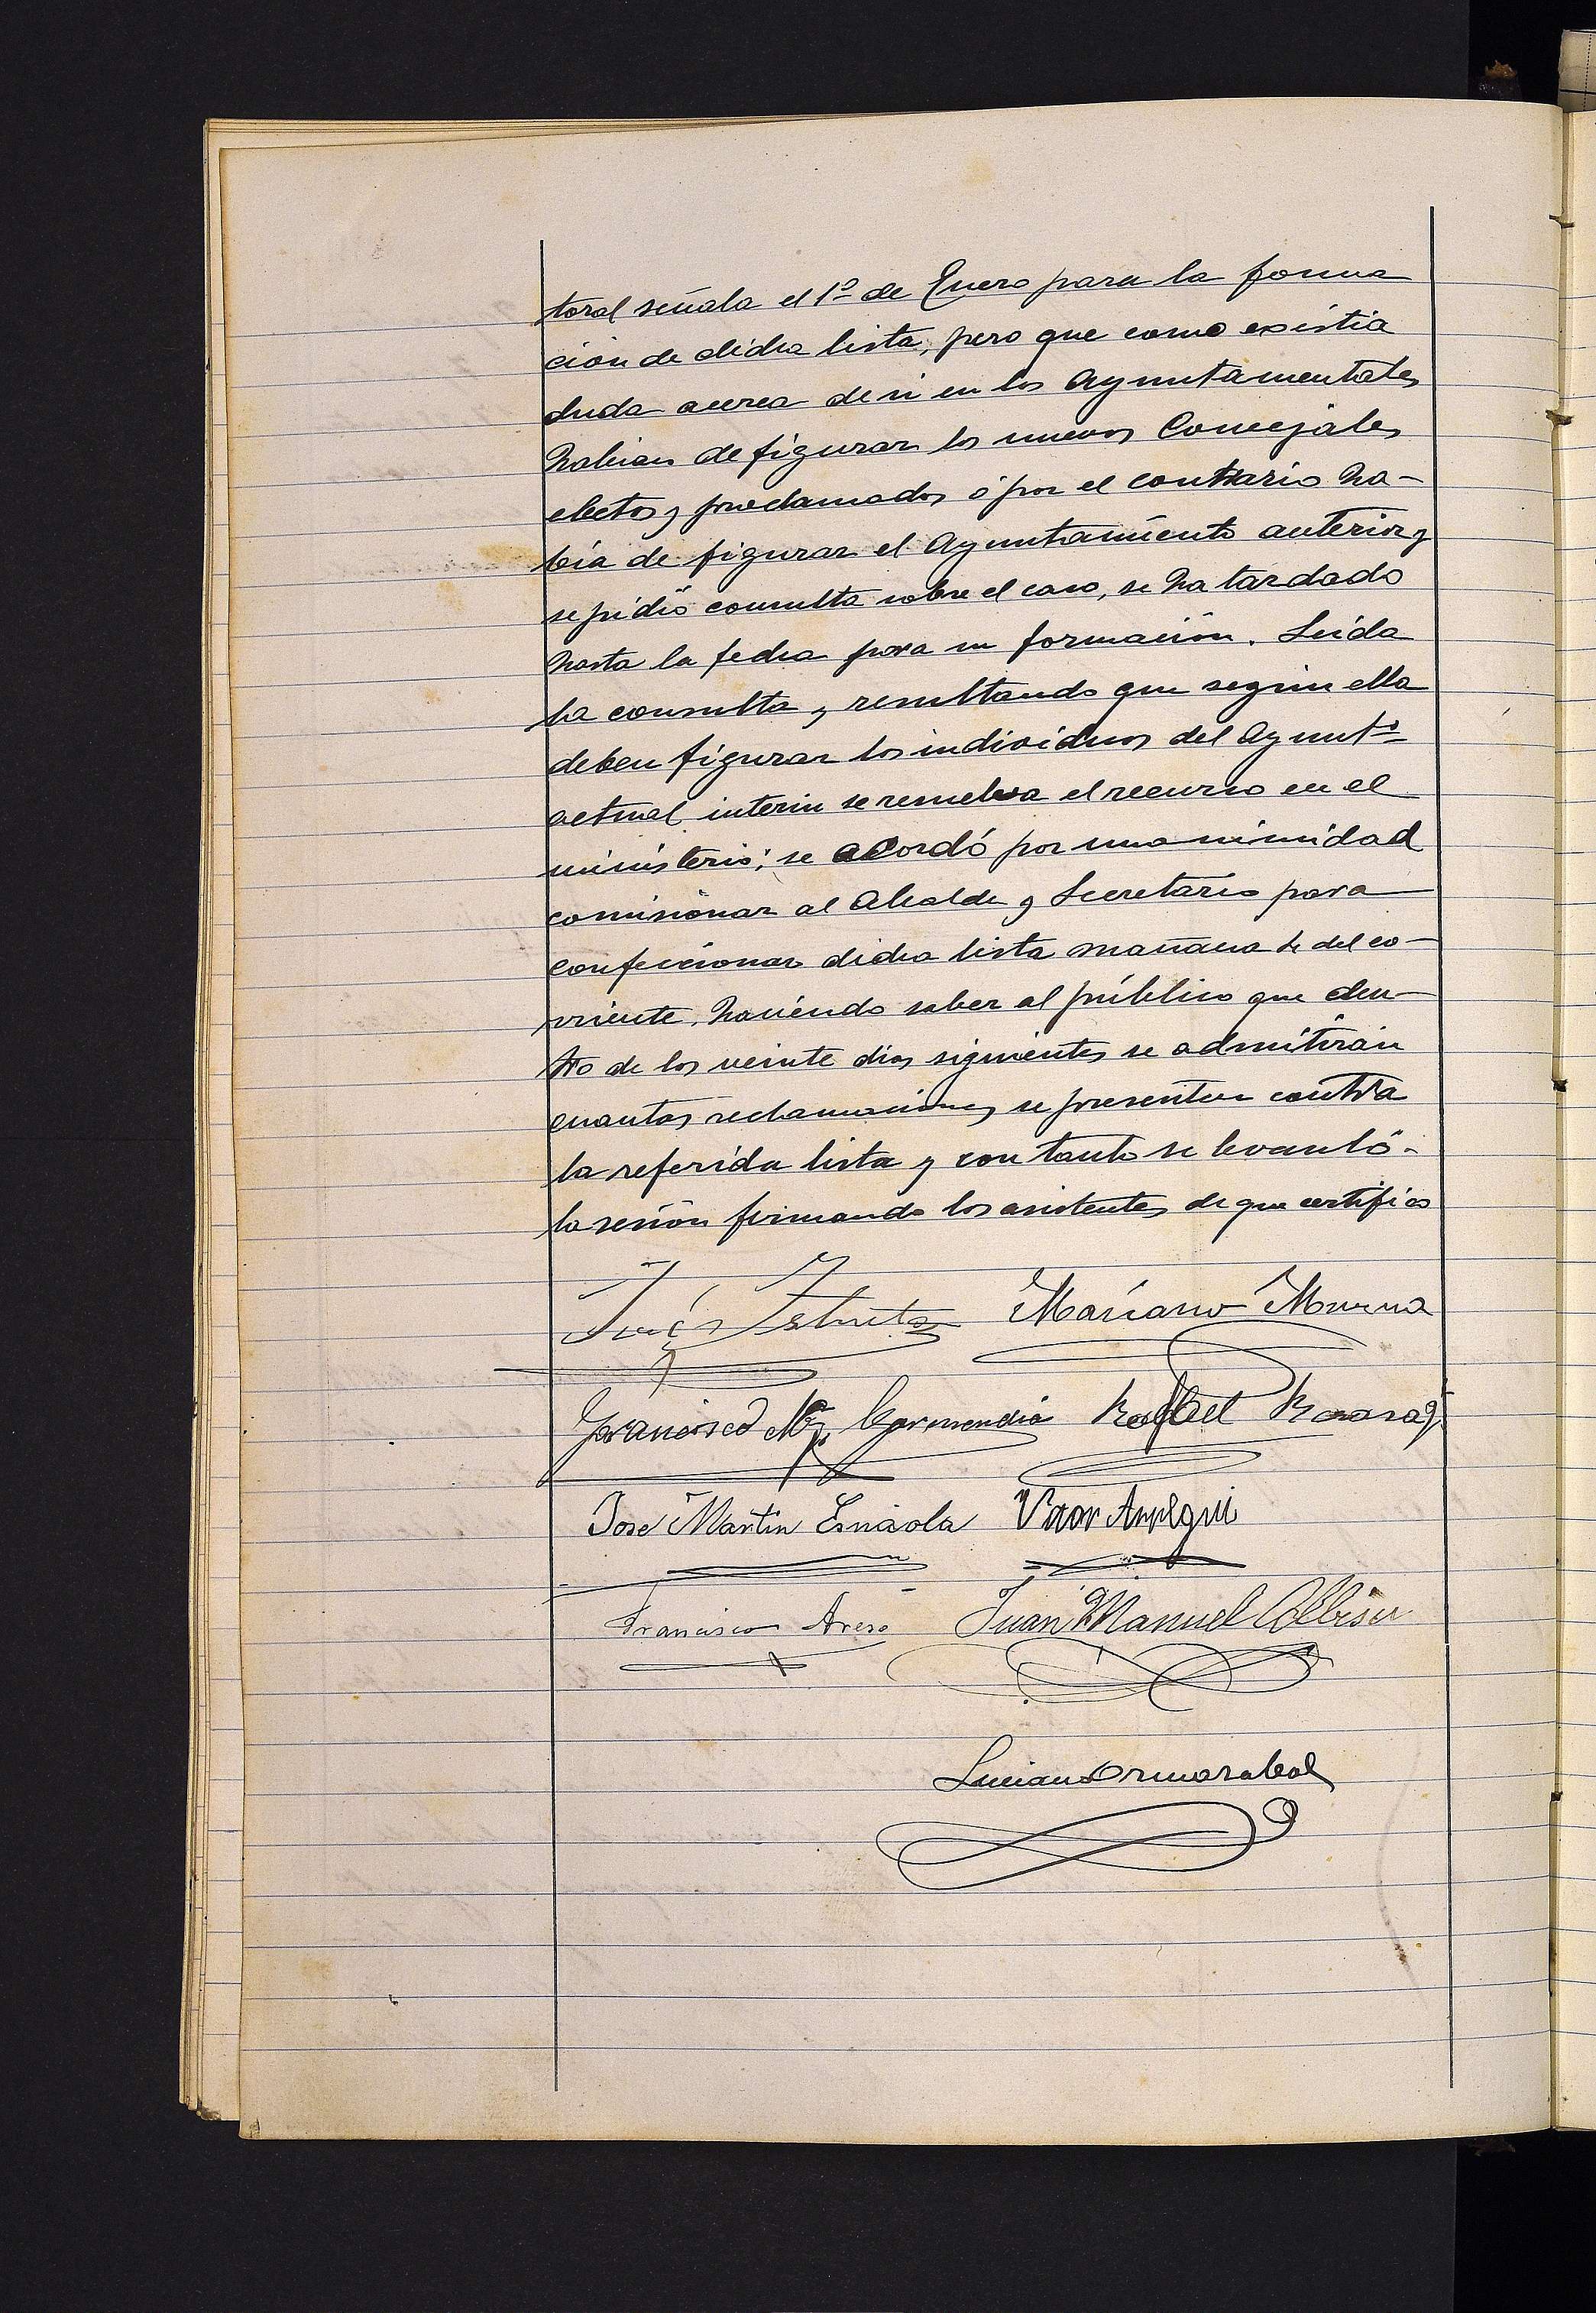 toral señala el 1º de Enero para la forma
ción de dicha lista, pero que como existia
duda acerca de si en los Ayuntamentales
habian de figurar los nuevos Concejales
electos y proclamados ó por el contrario ha-
bía de figurar el Ayuntamiento anterior y
se pidió consulta sobre el caso, se ha tardado
hasta la fecha para su formación. Leida
la consulta y resultando que según ella
deben figurar los individuos del Ayuntº
actual interin se resuelva el recurso en el
ministerio; se acordó por unanimidad
comisionar al Alcalde y Secretario para
confeccionar dicha lista mañana 4 del co-
rriente, haciendo saber al público que den-
tro de los veinte dias siguientes se admitirán
cuantas reclamaciones se presenten contra
la referida lista y con tanto se levantó
la sesión firmando los asistentes de que certifico
Mariano Murua
Francisco Garmendia Rafael
José Martin Esnaola
Francisco Juan Manuel Albisu
Luciano Ormazabal